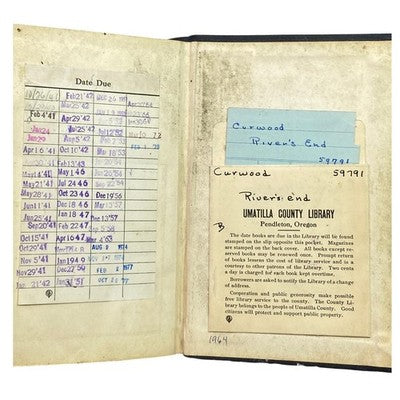 Date Due
Feb 21 '42
Mar 25 '42
Feb 4 '41
Apr 29 '42
Jun 24
Jul 25 '42
Jul 12 '52
Aug 29
Apr 16 '41
Oct 10 '42
Feb 13 '43
May 14 '41
May 1 46
May 21 '41
Jul 24 46
Dec 19 56
Jun 11 '41
Dec 18 46
Jan 18 47
Dec 13 '57
Sep 20 '41
Feb 22 47
Oct 15 '41
Apr 16 47
Mar 4 '63
Oct 29 '41
Nov 17 '41
Jan 19 49
Nov 29 '41
Dec 22 59
FEB 2 1977
Jan 21 '42
Curwood
River's End
59791
Curwood 59791
River's end
B
UMATILLA COUNTY LIBRARY
Pendleton, Oregon
The date books are due in the Library will be found
stamped on the slip opposite this pocket. Magazines
are stamped on the back cover. All books except re-
served books may be renewed once. Prompt return
of books lessens the cost of library service and is a
courtesy to other patrons of the Library. Two cents
a day is charged for each book kept overtime.
Borrowers are asked to notify the Library of a change
of address.
Cooperation and public generosity make possible
free library service to the county. The County Li-
brary belongs to the people of Umatilla County. Good
citizens will protect and support public property.
1964